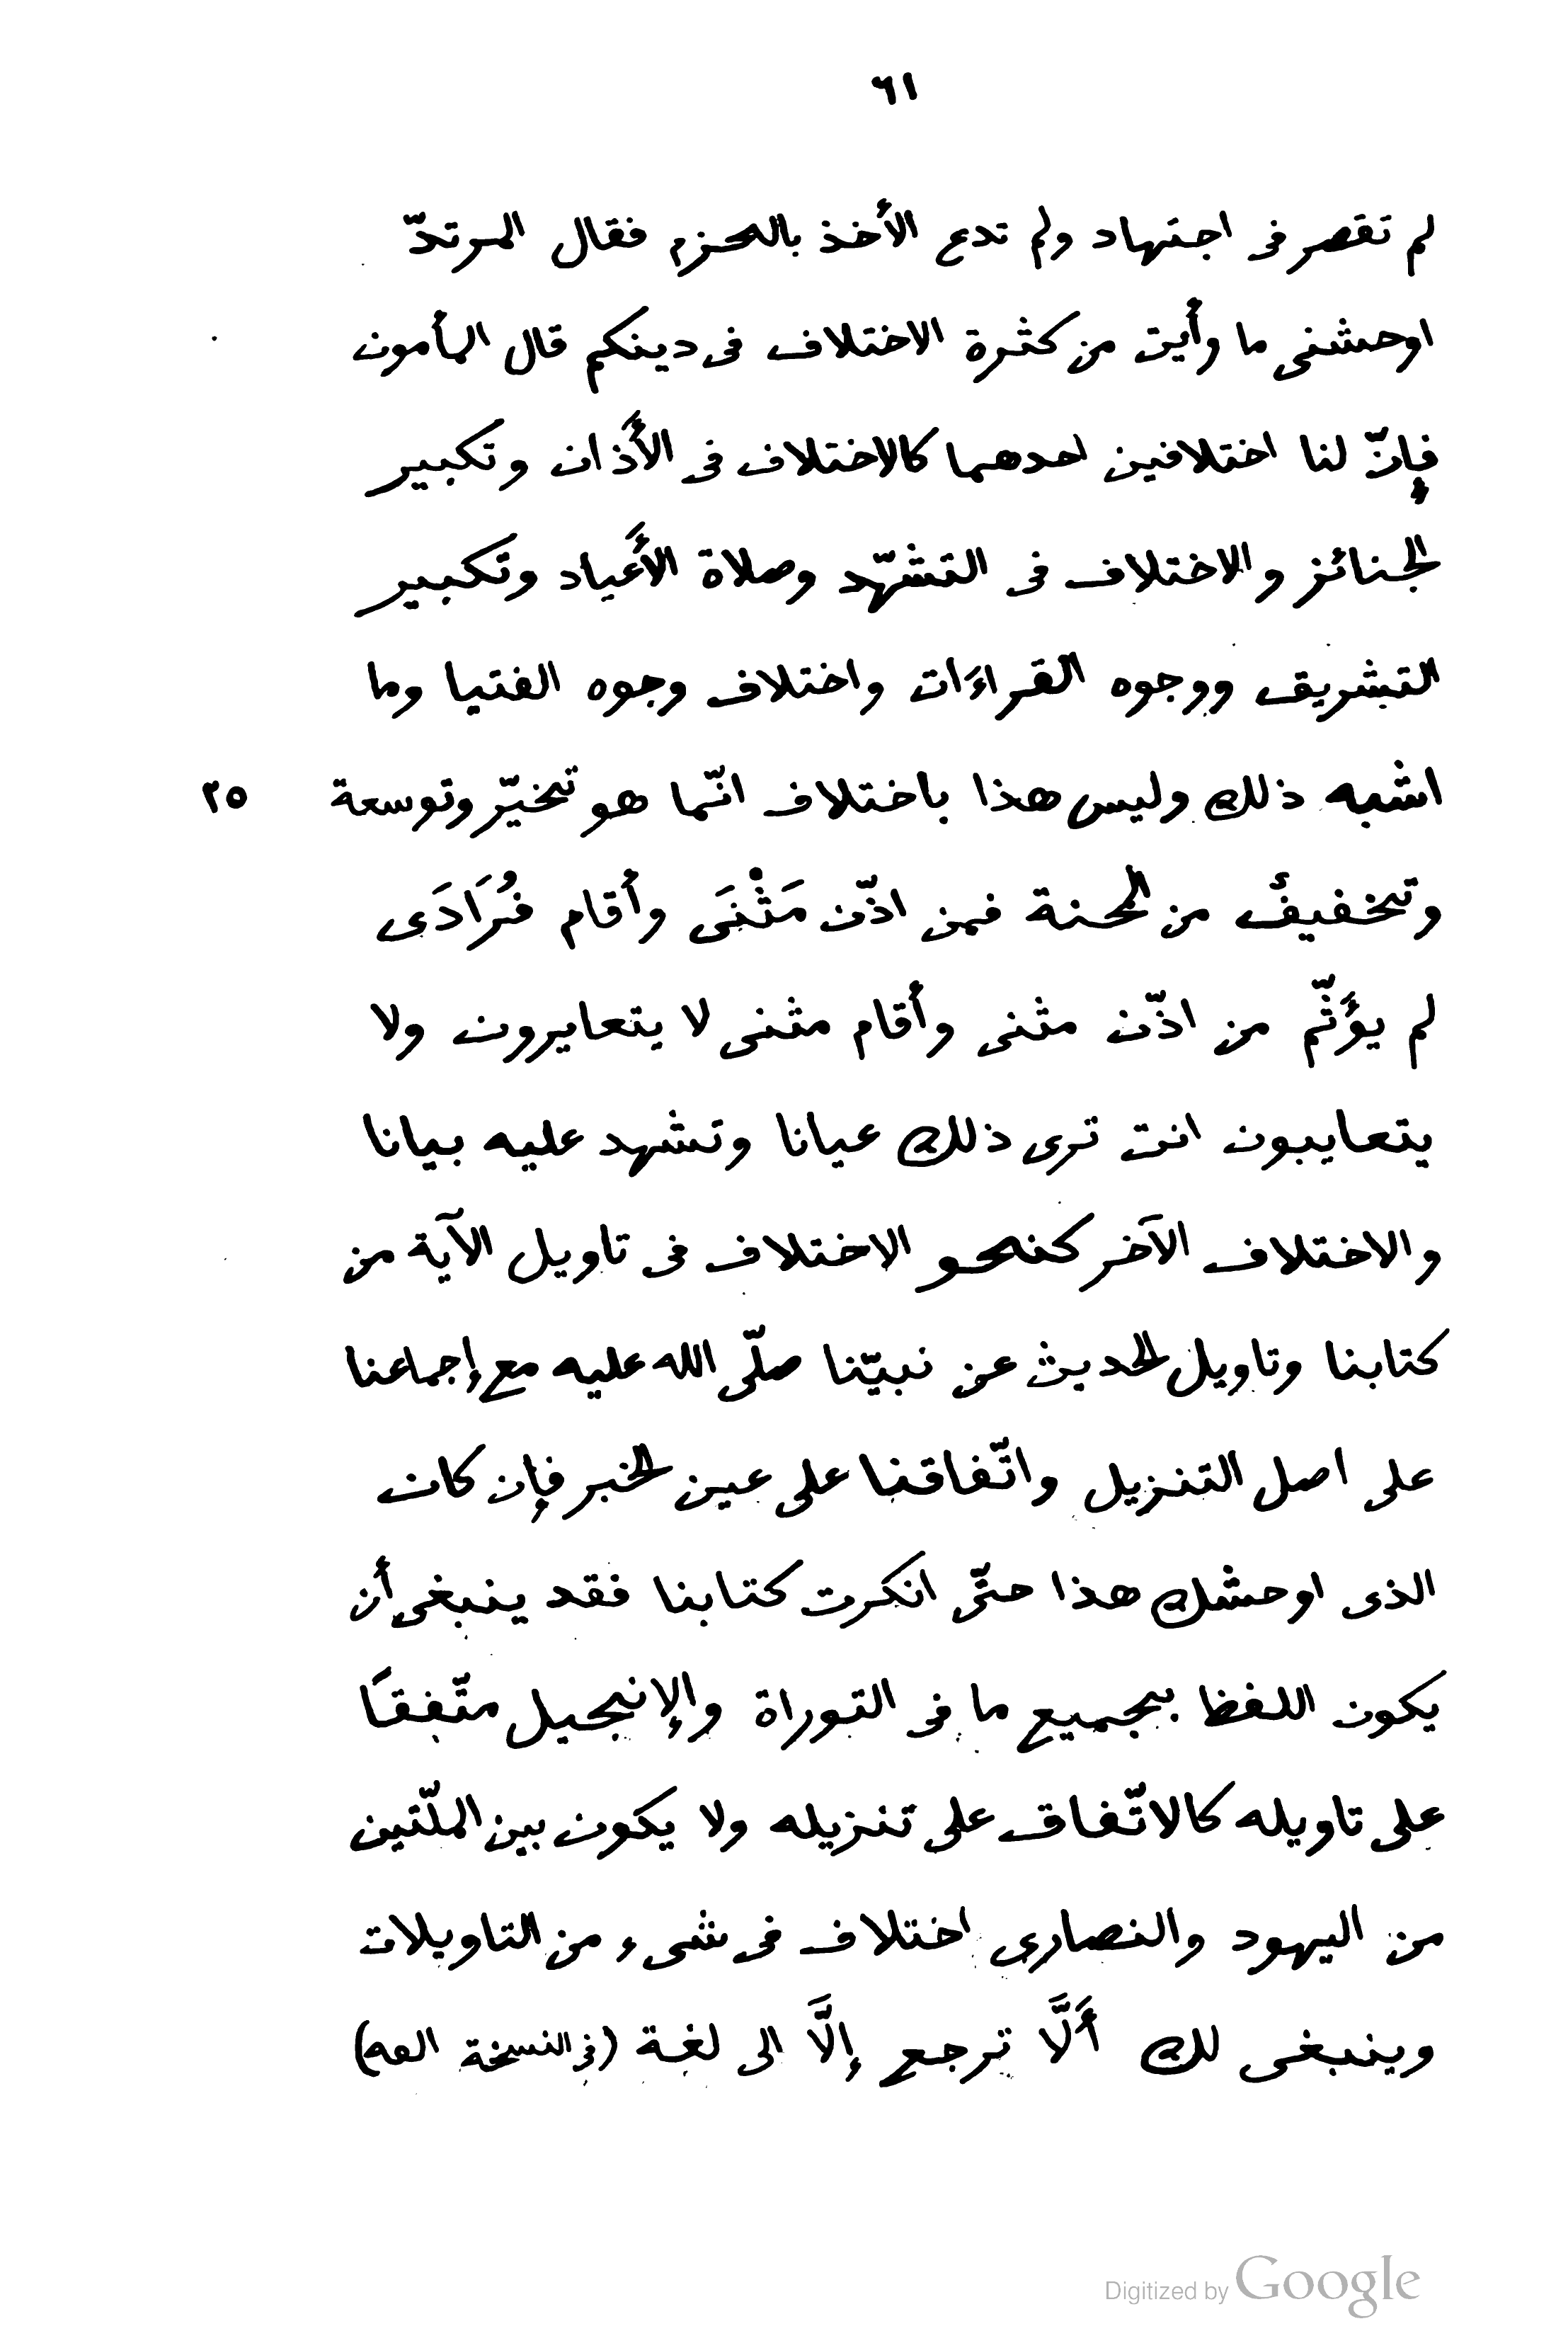 ٦١
لم تقصر فى اجتهاد ولم تدع الأخذ بالحزم فقال المرتدّ
اوحشنى ما رأيت من كثرة الاختلاف فى دينكم قال المأمون
فإنّ لنا اختلافين احدهما كالاختلاف فى الأَذان وتكبير
الجنائز والاختلاف فى التشهّد وصلاة الأَعياد وتكبير
التشريق ووجوه القراءَات واختلاف وجوه الفتيا وما
اشبه ذلك وليس هذا باختلاف انّما هو تخيّر وتوسعة ٢٥
وتخفيف من المحنة فمن اذّن مَثْنَى وأقام فُرَادَى
لم يؤَثّم من اذّن مثنى وأقام مثنى لا يتعايرون ولا
يتعايبون انت ترى ذلك عيانا وتشهد عليه بيانا
والاختلاف الآخر كنحو الاختلاف فى تاويل الآية من
كتابنا وتاويل الحديث عن نبيّنا صلّى الله عليه مع إجماعنا
على اصل التنزيل واتّفاقنا على عين الخبر فإن كان
الذى اوحشك هذا حتّى انكرت كتابنا فقد ينبغى أن
يكون اللفظ بجميع ما فى التوراة والإنجيل متّفقًا
على تاويله كالاتّفاق على تنزيله ولا يكون بين الملّتين
من اليهود والنصارى اختلاف فى شىء من التاويلات
وينبغى لك أَلَّا ترجع إلَّا الى لغة (فى النسخة العه)
Digitized by Google